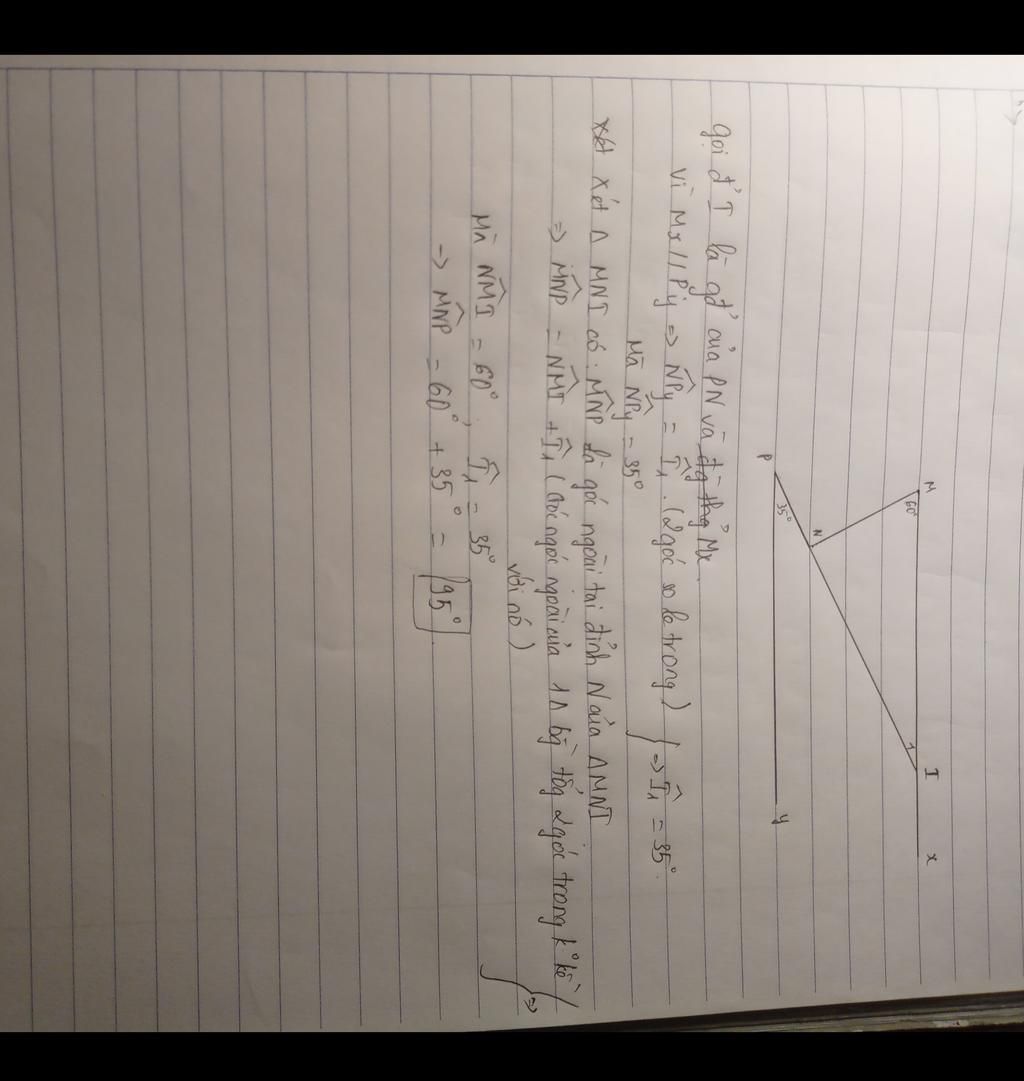 M
60°
I
x
1
N
P
35°
y
gọi đ' I là gđ' của PN và đg thg' Mx.
vì Mx // Py => N̂Py = Î₁ . (2 góc so le trong)
Mà N̂Py = 35°
=> Î₁ = 35°.
xét xét Δ MNI có. M̂NP là góc ngoài tại đỉnh N của Δ MNI
=> M̂NP = N̂MI + Î₁ (góc ngoài của 1Δ bg̀ tổg 2 góc trong k° kề
với nó)
Mà N̂MI = 60° ; Î₁ = 35°
=>
-> M̂NP = 60° + 35° = 95°.